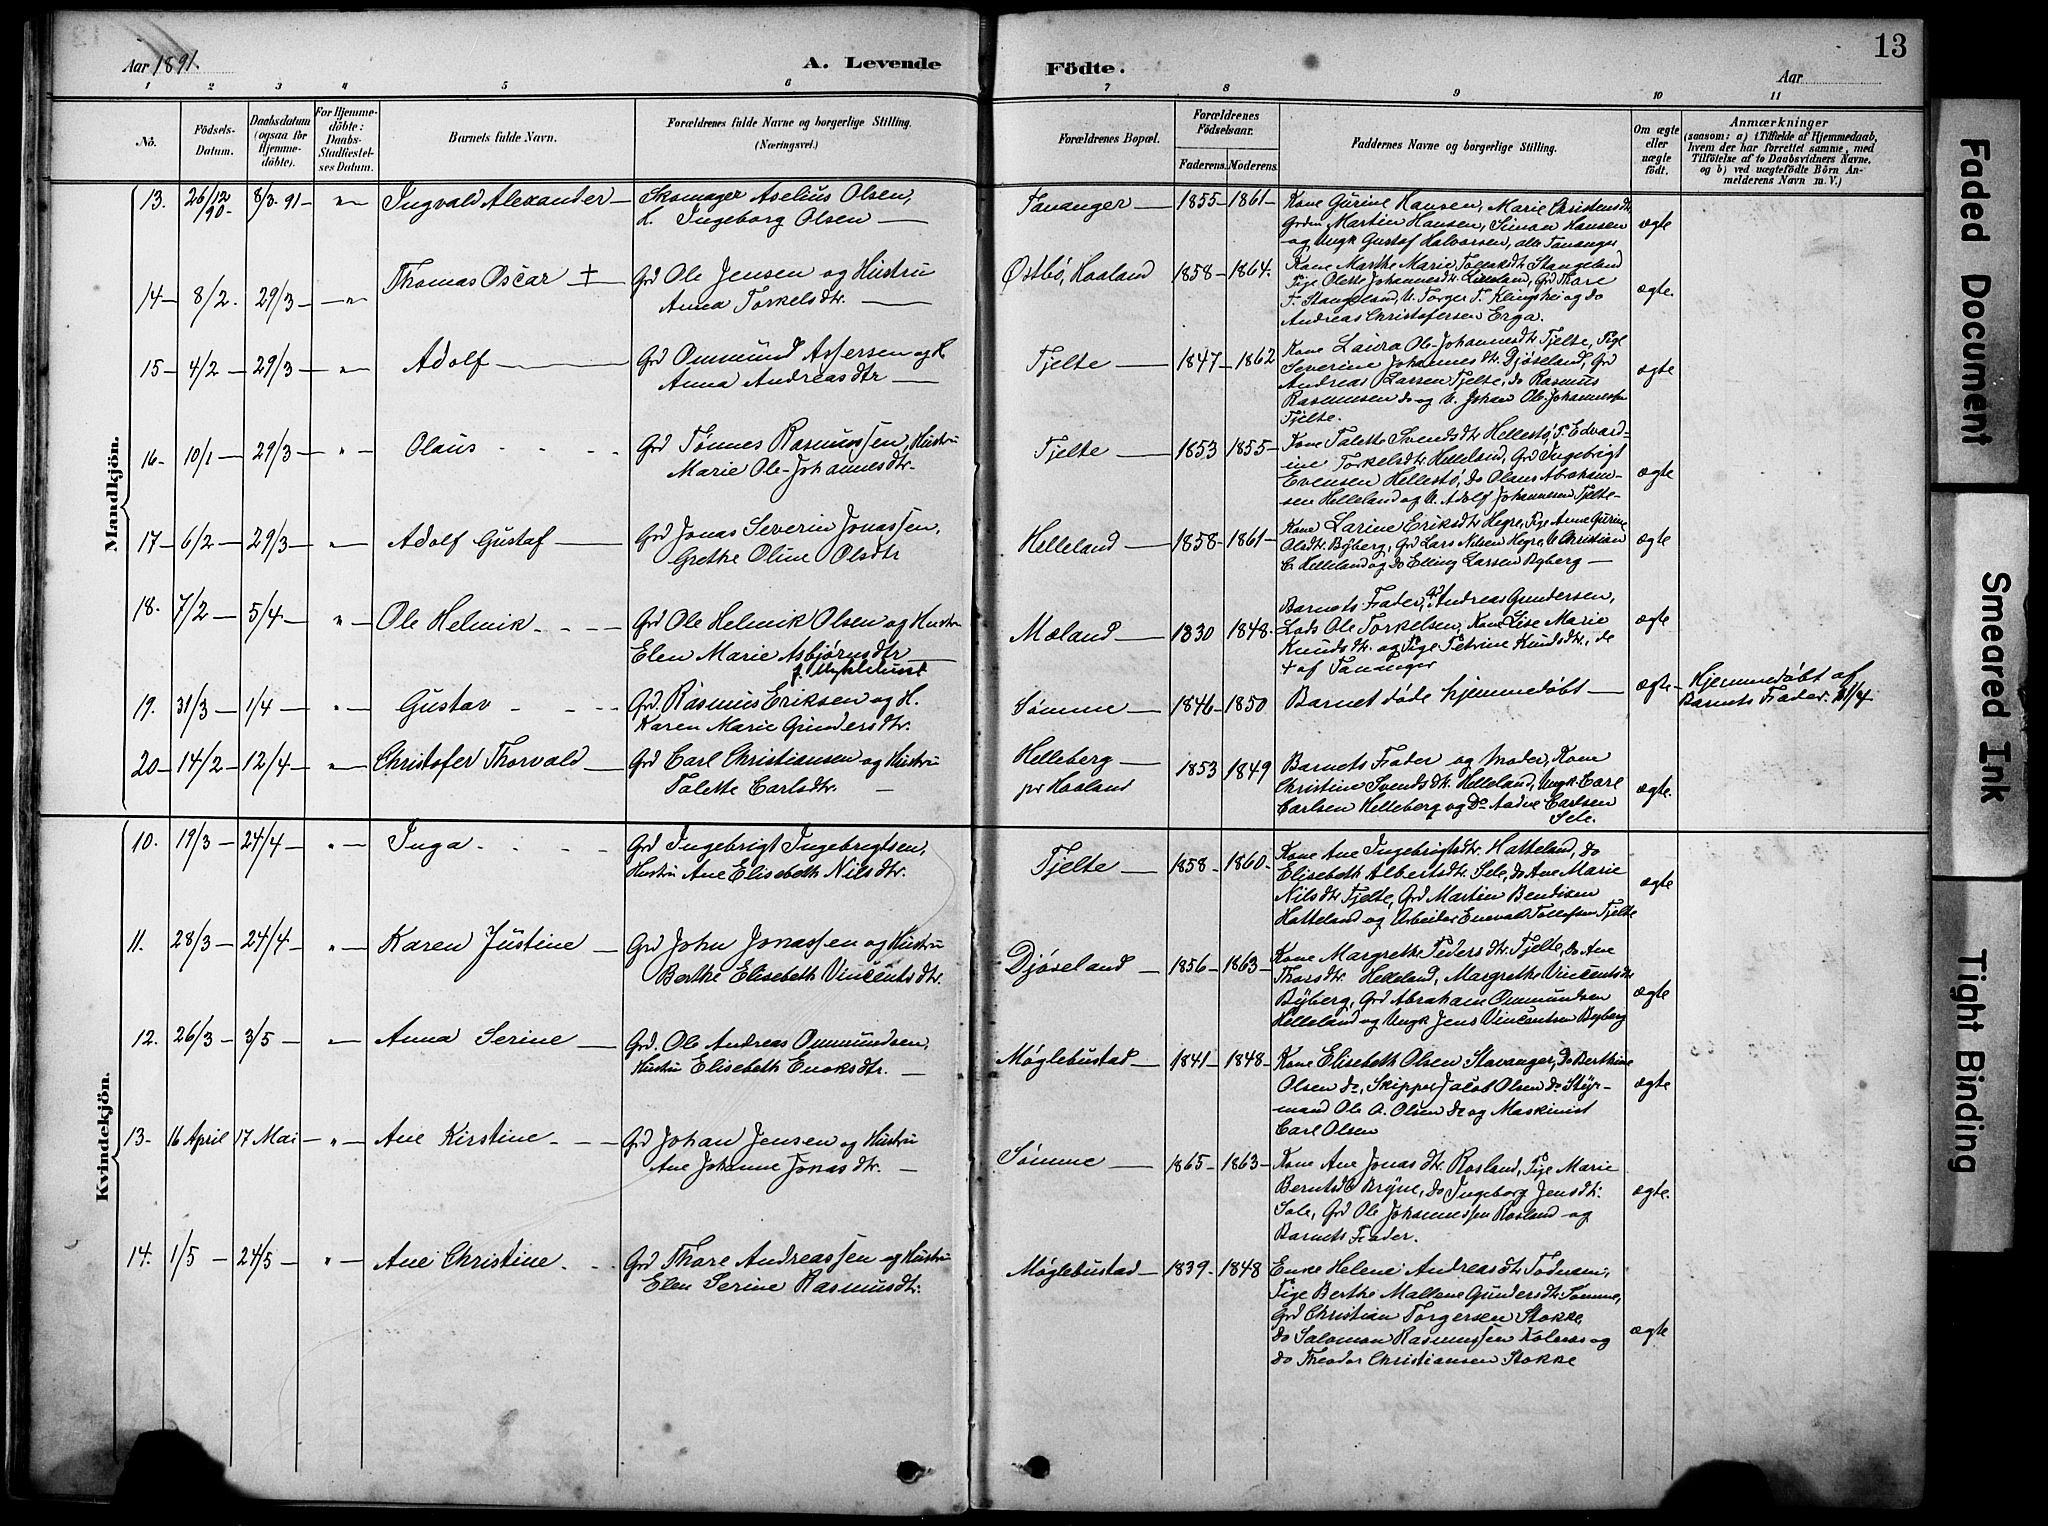 Aar 1891.
A. Levende
Födte.
Aar
13
1 2 3 4 5 6 7 8 9 10 11
No.
Födsels-Datum.
Daabsdatum (ogsaa for Hjemmedöbte).
For Hjemmedöbte: Daabs-Stadfæstelses Datum.
Barnets fulde Navn.
Forældrenes fulde Navne og borgerlige Stilling. (Næringsvei.)
Forældrenes Bopæl.
Forældrenes Födselsaar.
Faderens. Moderens.
Faddernes Navne og borgerlige Stilling.
Om ægte eller uægte födt.
Anmærkninger
(saasom: a) i Tilfælde af Hjemmedaab, hvem der har forrettet samme, med Tilföielse af to Daabsvidners Navne, og b) ved uægtefödte Börn Anmelderens Navn m. V.)
Mandkjön.
13. 26/12 90 8/3 91 Ingvald Alexander Skomager Aselius Olsen, H. Ingeborg Olsen Tananger 1855 1861 Kone Gurine Hansen, Marie Christensdtr, Grdm Martin Hansen, Simon Hansen og Ungk Gustaf Halvorsen, alle Tananger ægte
14 8/2. 29/3 Thomas Oscar + Grd Ole Jensen og Hustru Anna Torkelsdtr. Østbö, Haaland 1858 1864. Kone Marthe Marie Tollaksdtr Stangeland Pige Olette Johannesdtr Lilleland, Grd Thore T. Stangeland, U. Torger T. Klingshei og do Andreas Christofersen Erga. ægte.
15 4/2 29/3 Adolf Grd Ommund Assersen og H. Anna Andreasdtr Tjelte 1847 1862 Kone Laura Ole-Johannesdtr Tjelte, Pige Severine Johannesdtr. Djöseland, Grd Andreas Larsen Tjelte, do Rasmus Rasmussen do og U. Johan Ole-Johannessen Tjelte. ægte
16 10/1 29/3 Olaus Grd Tönnes Rasmussen, Hustru Marie Ole-Johannesdtr. Tjelte 1853 1855 Kone Talette Svendsdtr Hellestö, P. Edvardine Torkelsdtr Helleland, Grd Ingebrigt Evensen Hellestö, do Olaus Abrahamsen Helleland og U. Adolf Johannesen Tjelte ægte
17 6/2 29/3 Adolf Gustaf Grd Jonas Severin Jonassen, Grethe Oline Olsdtr Helleland 1858 1861 Kone Larine Eriksdtr Hegre, Pige Anne Gurine Olsdtr. Byberg, Grd Lars Nilsen Hegre, U Christian C. Helleland og do Elling Larsen Byberg ægte
18. 7/2 5/4 Ole Helmik Grd Ole Helmik Olsen og Hustru Elen Marie Asbjörnsdtr Mæland 1830 1848. Barnets Fader, Grd Andreas Gundersen, Lods Ole Torkelsen, Kone Lise Marie Knudsdtr. og Pige Petrine Knudsdtr., de 4 af Tananger ægte
19. 31/3 1/4 Gustav Grd Rasmus Eriksen og H. Karen Marie Gundersdtr. Sömme 1846 1850 Barnet döde hjemmedöbt ægte Hjemmedöbt af Barnets Fader.
20 14/2 12/4 Christofer Thorvald Grd Carl Christiansen og Hustru Talette Carlsdtr. Helleberg pr Haaland 1853 1849 Barnets Fader og Moder, Kone Christine Svendsdtr. Helleland, Ungk Carl Carlsen Helleberg og Do Aadne Carlsen Sele. ægte.
Kvindekjön.
10. 19/3 24/4 Inga Grd Ingebrigt Ingebrigtsen, Hustru Ane Elisebeth Nilsdtr. Tjelte 1858 1860 Kone Ane Ingebrigtsdtr. Hatteland, do Elisebeth Albertsdtr. Sele, do Ane Marie Nilsdtr Tjelte, Grd Martin Bendixen Hatteland og Arbeider Enevald Tollefsen Tjelte ægte
11. 28/3 24/4 Karen Justine Grd John Jonassen og Hustru Berthe Elisebeth Vincentsdtr. Djöseland 1856 1863 Kone Margrethe Pedersdtr Tjelte, do Ane Thorsdtr. Helleland, Margrethe Vincentsdtr Byberg, Grd Abraham Ommundsen Helleland og Ungk Jens Vincentsen Byberg ægte
12. 26/3 3/5 Anna Serine Grd. Ole Andreas Ommundsen, Hustru Elisebeth Enoksdtr. Möglebustad 1841 1848 Kone Elisebeth Olsen Stavanger, Do Berthine Olsen do, Skipper Jacob Olsen do Styrmand Ole A. Olsen do og Maskinist Carl Olsen ægte
13. 16 April 17 Mai Ane Kirstine Grd Johan Jensen og Hustru Ane Johanne Jonasdtr. Sömme 1865 1863 Kone Ane Jonasdtr Rosland, Pige Marie Berntsdtr Bryne, do Ingeborg Jensdtr. Sole, Grd Ole Johannessen Rosland og Barnets Fader. ægte.
14. 1/5 24/5 Ane Christine Grd Thore Andreassen og Hustru Elen Serine Rasmusdtr. Möglebustad 1839 1848 Enke Helene Andreasdtr Todnem, Pige Berthe Mallene Gundersdtr Sömme, Grd Christian Torgersen Stokke, do Salomon Rasmussen Kolnes og do Theodor Christiansen Stokke ægte
Faded Document
Smeared Ink
Tight Binding